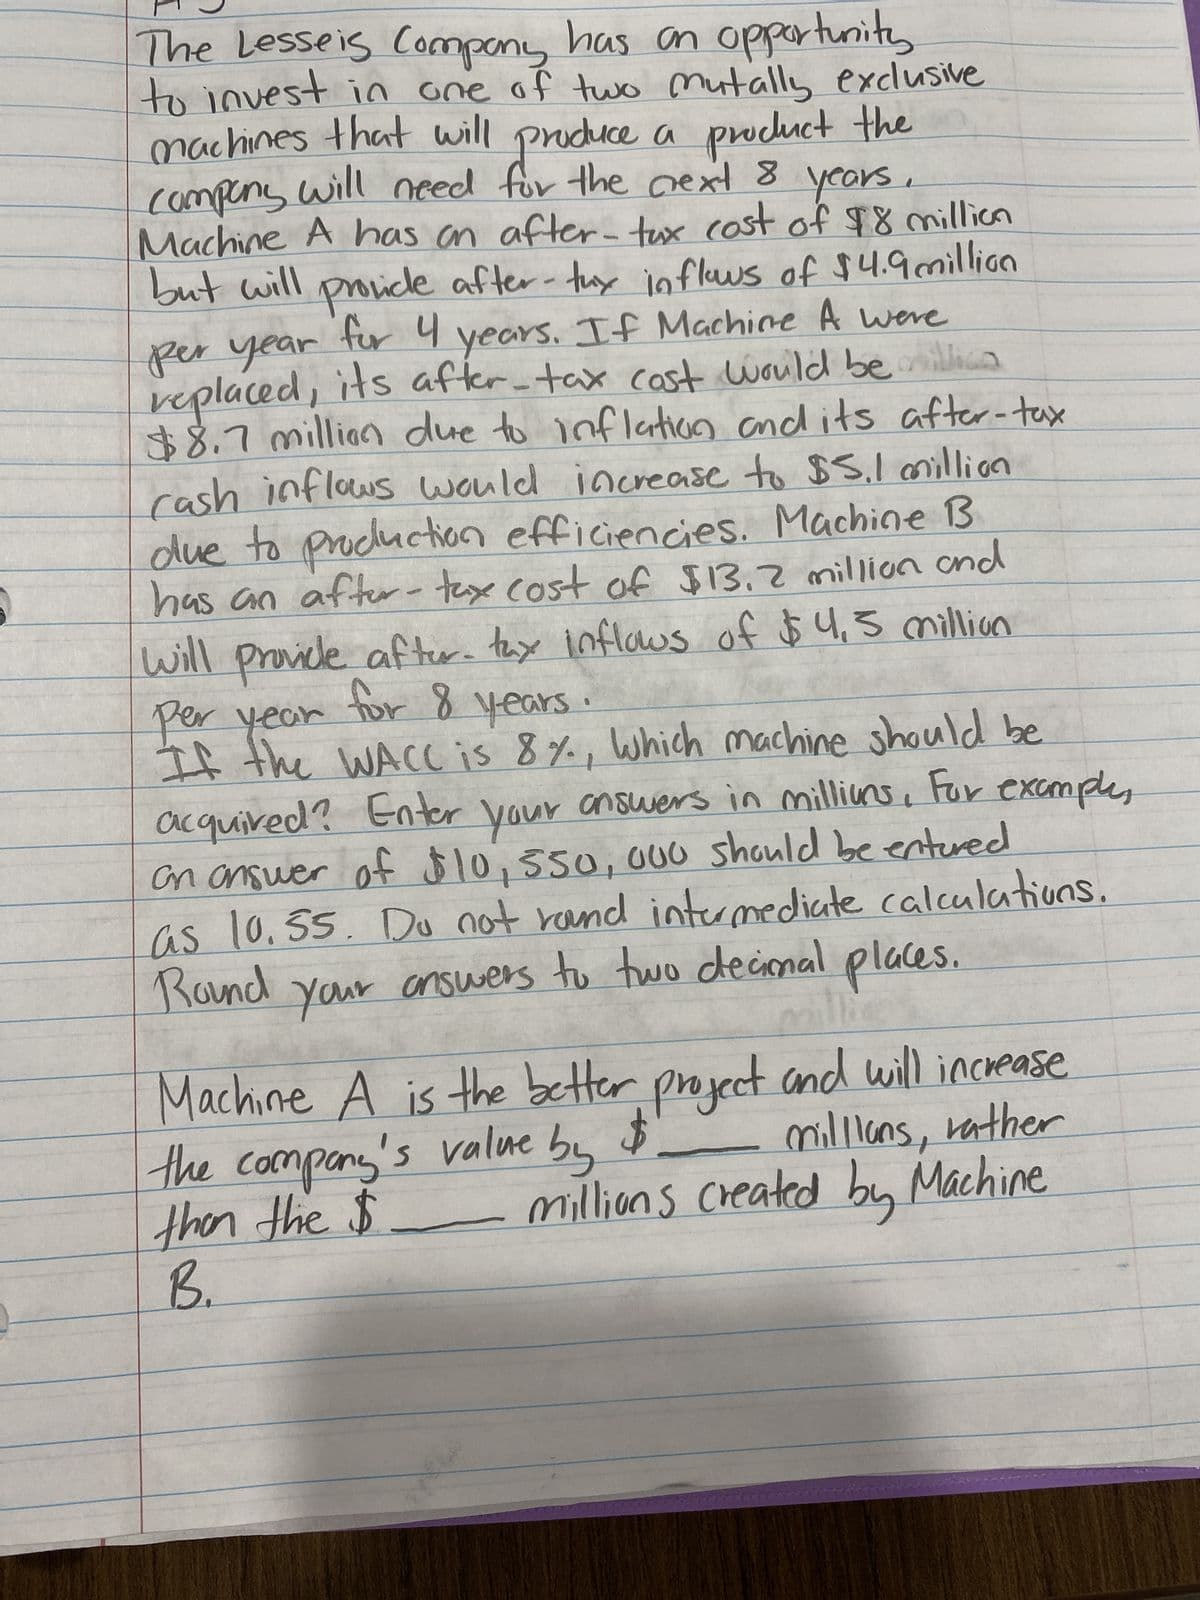 The Lesseig Company has an opportunity
to invest in one of two mutally exclusive
machines that will produce a product the
company will need for the next 8 years.
Machine A has an after-tax cost of $8 million
but will provide after-tax inflows of $4.9 million
per year for 4 years. If Machine A were
replaced, its after-tax cost would be
$8.7 million due to inflation and its after-tax
cash inflows would increase to $5.1 million
due to production efficiencies. Machine B
has an after-tax cost of $13.2 million and
will provide after-tax inflows of $4.5 million
per year for 8 years.
If the WACC is 8%, which machine should be
acquired? Enter your answers in millions. For example,
an answer of $10,550,000 should be entered
as 10.55. Do not round intermediate calculations.
Round your answers to two decimal places.
Machine A is the better project and will increase
the company's value by $ ___ millions, rather
than the $ ___ millions created by Machine
B.